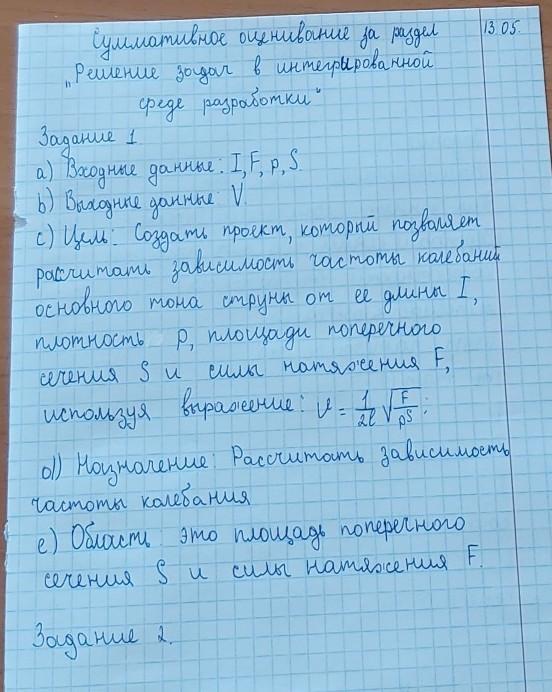 Суммативное оценивание за раздел 13.05.
„Решение задач в интегрированной
среде разработки"
Задание 1.
a) Входные данные: I, F, p, S.
b) Выходные данные V.
c) Цель: Создать проект, который позволяет
рассчитать зависимость частоты колебаний
основного тона струны от ее длины I,
плотность p, площади поперечного
сечения S и силы натяжения F,
используя выражение: ν = 1/2l √F/pS;
d) Назначение: Рассчитать зависимость
частоты колебания
e) Область: это площадь поперечного
сечения S и силы натяжения F.
Задание 2.